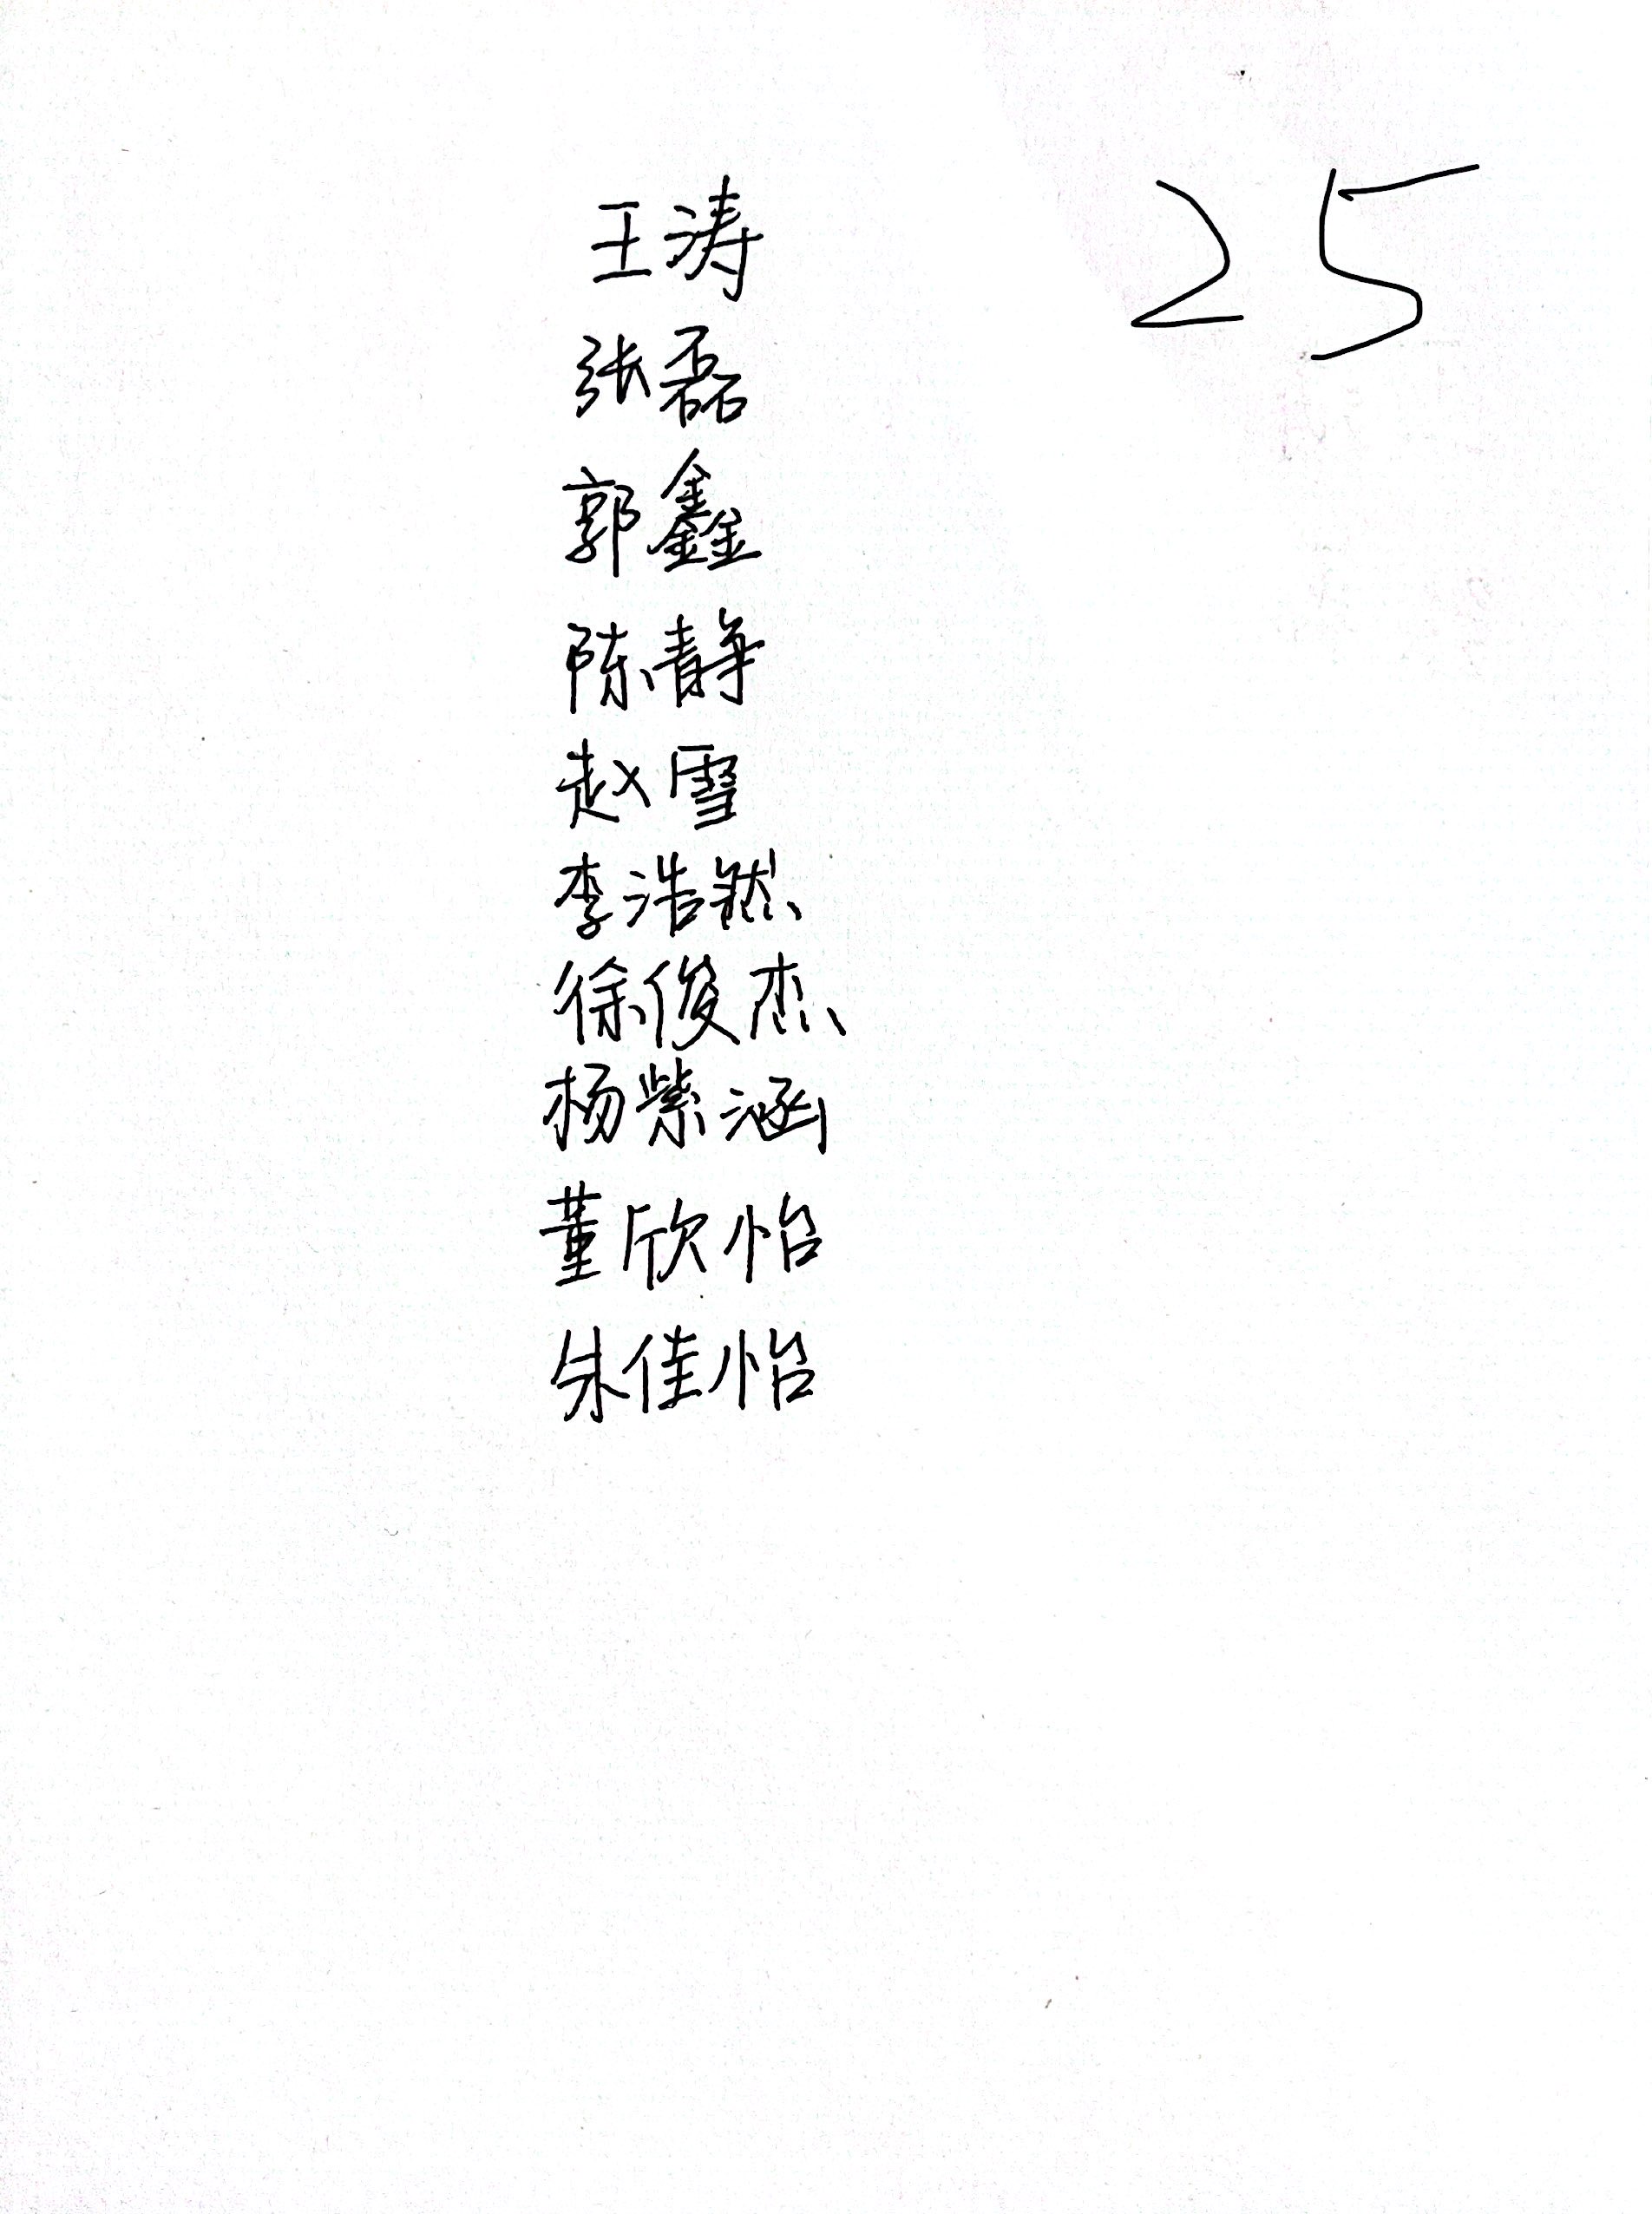 王涛
25
张磊
郭鑫
陈静
赵雪
李浩然
徐俊杰
杨紫涵
董欣怡
朱佳怡